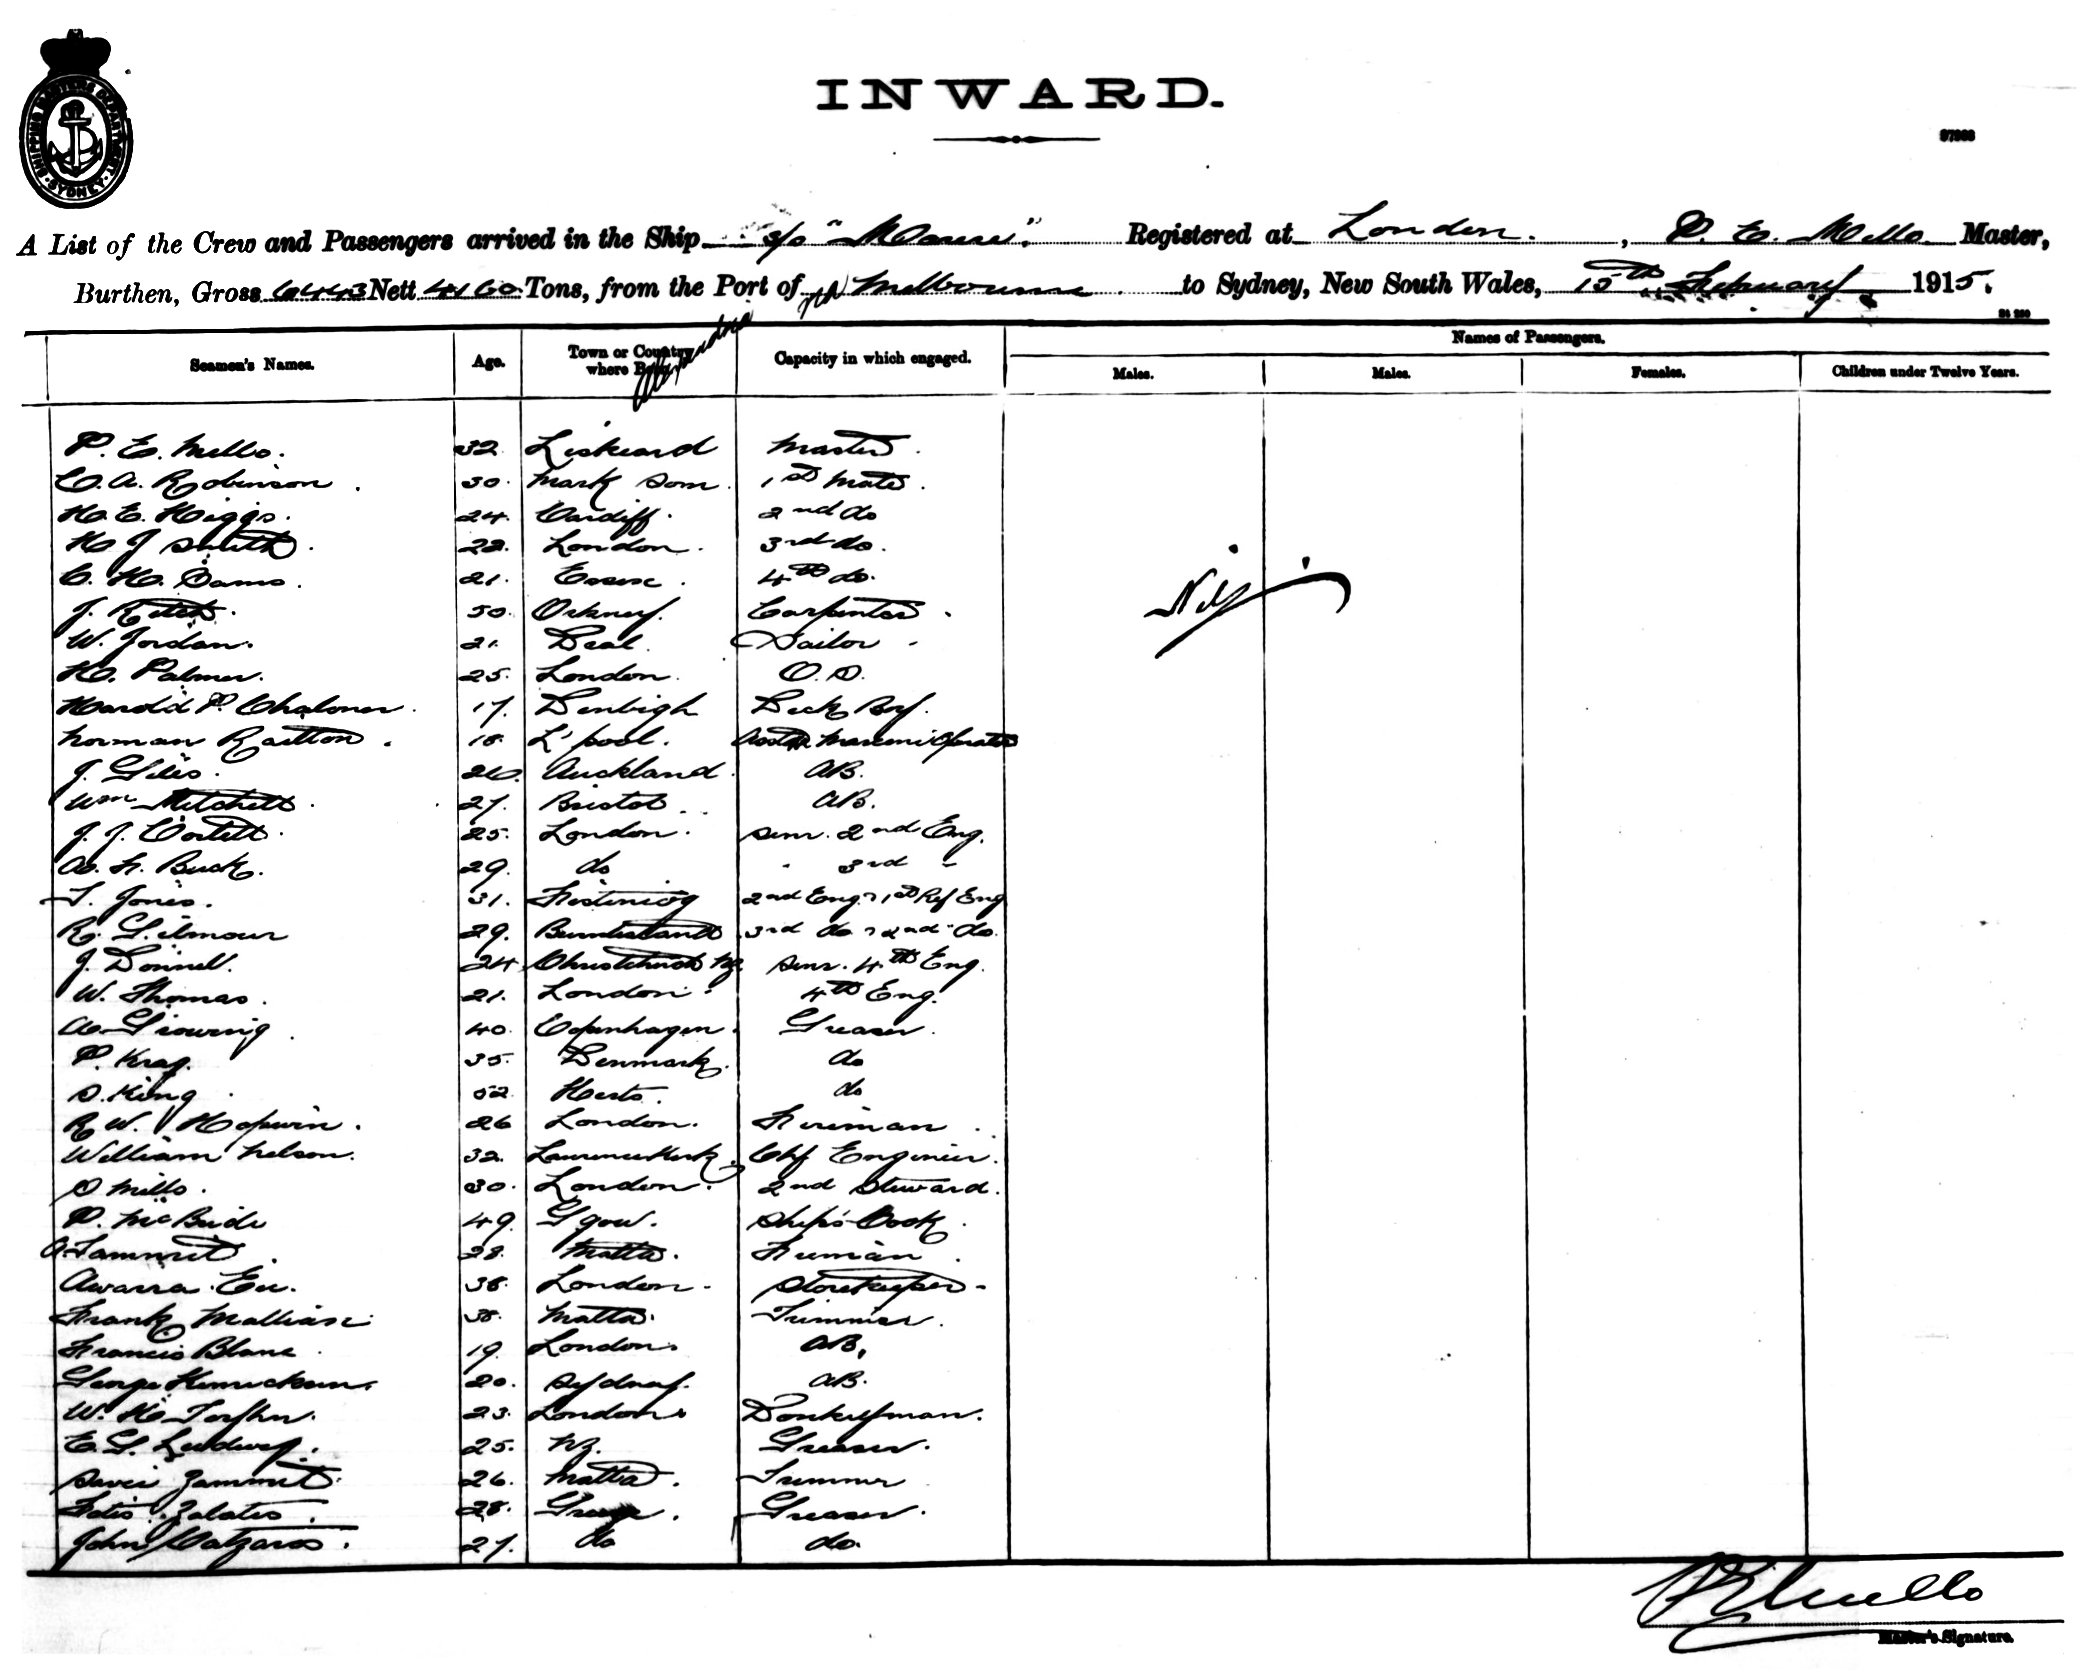 SHIPPING MASTERS DEPARTMENT
SYDNEY
INWARD.
A List of the Crew and Passengers arrived in the Ship s/s " " Registered at London. , P. E. Mello. Master,
Burthen, Gross 6443 Nett 4160 Tons, from the Port of Alexandria via Melbourne to Sydney, New South Wales, 15th February 1915.
Names of Passengers.
Seamen's Names. Age. Town or Country where Born. Capacity in which engaged. Males. Males. Females. Children under Twelve Years.
P. E. Mello. 32. Liskeard Master.
C. A. Robinson. 30. Mark Som. 1st Mate.
H. E. Higgs. 24. Cardiff. 2nd do
H J Smith. 22. London. 3rd do.
C. H. 21. Essex. 4th do.
Nil
J. 50. Orkney. Carpenter.
W. Jordan. 21. Deal. Sailor
H. Palmer. 25. London. O.S.
Harold P. Chaloner. 17. Denbigh Deck Boy.
Norman Railton. 18. L'pool. Asst Marconi Operator
J. Giles. 26. Auckland. AB.
Wm Mitchell. 27. Bristol. AB.
J. J. 25. London. Senr. 2nd Eng.
A. F. Buck. 29. do " 3rd "
T. Jones. 31. Festiniog 2nd Eng & 1st Ref Eng
R. Gilmour 29. 3rd do & 2nd do.
J. Donnell. 24 Christchurch NZ. Senr. 4th Eng.
W. Thomas. 21. London. 4th Eng.
A. 40. Copenhagen. Greaser.
P. Krag. 35. Denmark. do
S. King 52. Herts. do
R W. 26 London. Fireman
William Nelson. 32. Laurencekirk. Chf Engineer.
S Mills. 30. London. 2nd Steward.
P. McBride 49. G'gow. Ship's Cook.
28. Malta. Fireman
38. London. Storekeeper
Frank 38. Malta. Trimmer.
Francis Blane. 19. London. AB.
George 20. Sydney. AB.
W. H. 23. London. Donkeyman.
E. G. Ludwig. 25. NZ. Greaser.
Zammit. 26. Malta. Trimmer
28. Greece. Greaser.
John 27. do do.
P E Mello
Master's Signature.